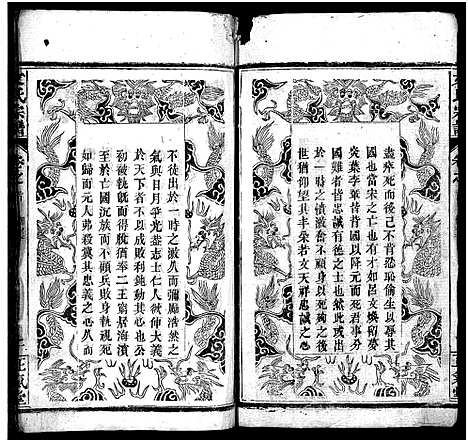 盡瘁死而後已不肯忍恥偷生以辱其
國也當宋之亡也亦有如呂文煥留夢
炎葉李輩背國以降元而死君事分
國難者皆忠誠有德之士也然此或出
於一時之憤激奮不顧身以死殉之後
世猶仰望其丰采若文天祥忠誠之心
不徒出於一時之激久而彌勵浩然之
氣與日月爭光蓋志士仁人欲伸大義
於天下者不以成敗利鈍動其心也公
初被執旣而得脫猶奉二王竄居海濱
至於亡國沉族而不顧兵敗力屈視死
如歸而元人弗殺冀其忠義之心久而
氏宗譜
正氣堂